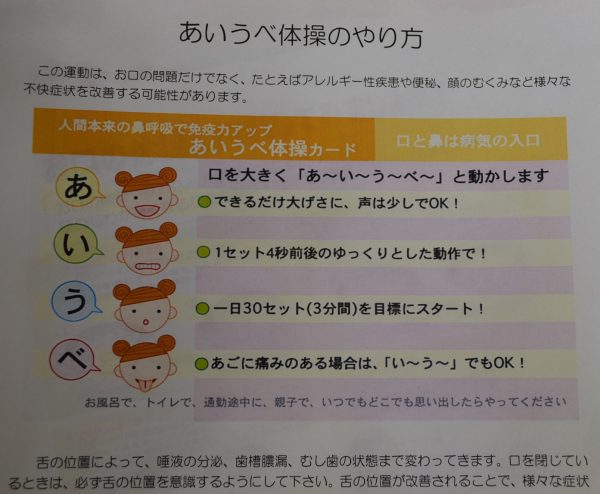 あいうべ体操のやり方
この運動は、お口の問題だけでなく、たとえばアレルギー性疾患や便秘、顔のむくみなど様々な
不快症状を改善する可能性があります。
人間本来の鼻呼吸で免疫力アップ
あいうべ体操カード
口と鼻は病気の入口
あ
口を大きく「あ〜い〜う〜べ〜」と動かします
できるだけ大げさに、声は少しでOK！
い
1セット4秒前後のゆっくりとした動作で！
う
一日30セット(3分間)を目標にスタート！
べ
あごに痛みのある場合は、「い〜う〜」でもOK！
お風呂で、トイレで、通勤途中に、親子で、いつでもどこでも思い出したらやってください
舌の位置によって、唾液の分泌、歯槽膿漏、むし歯の状態まで変わってきます。口を閉じてい
るときは、必ず舌の位置を意識するようにして下さい。舌の位置が改善されることで、様々な症状